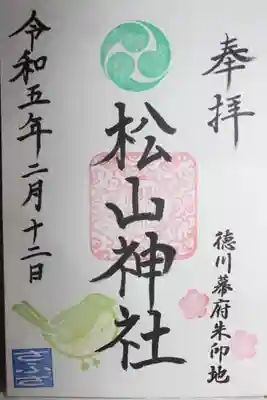 奉拝
徳川幕府朱印地
松山神社
令和五年二月十二日